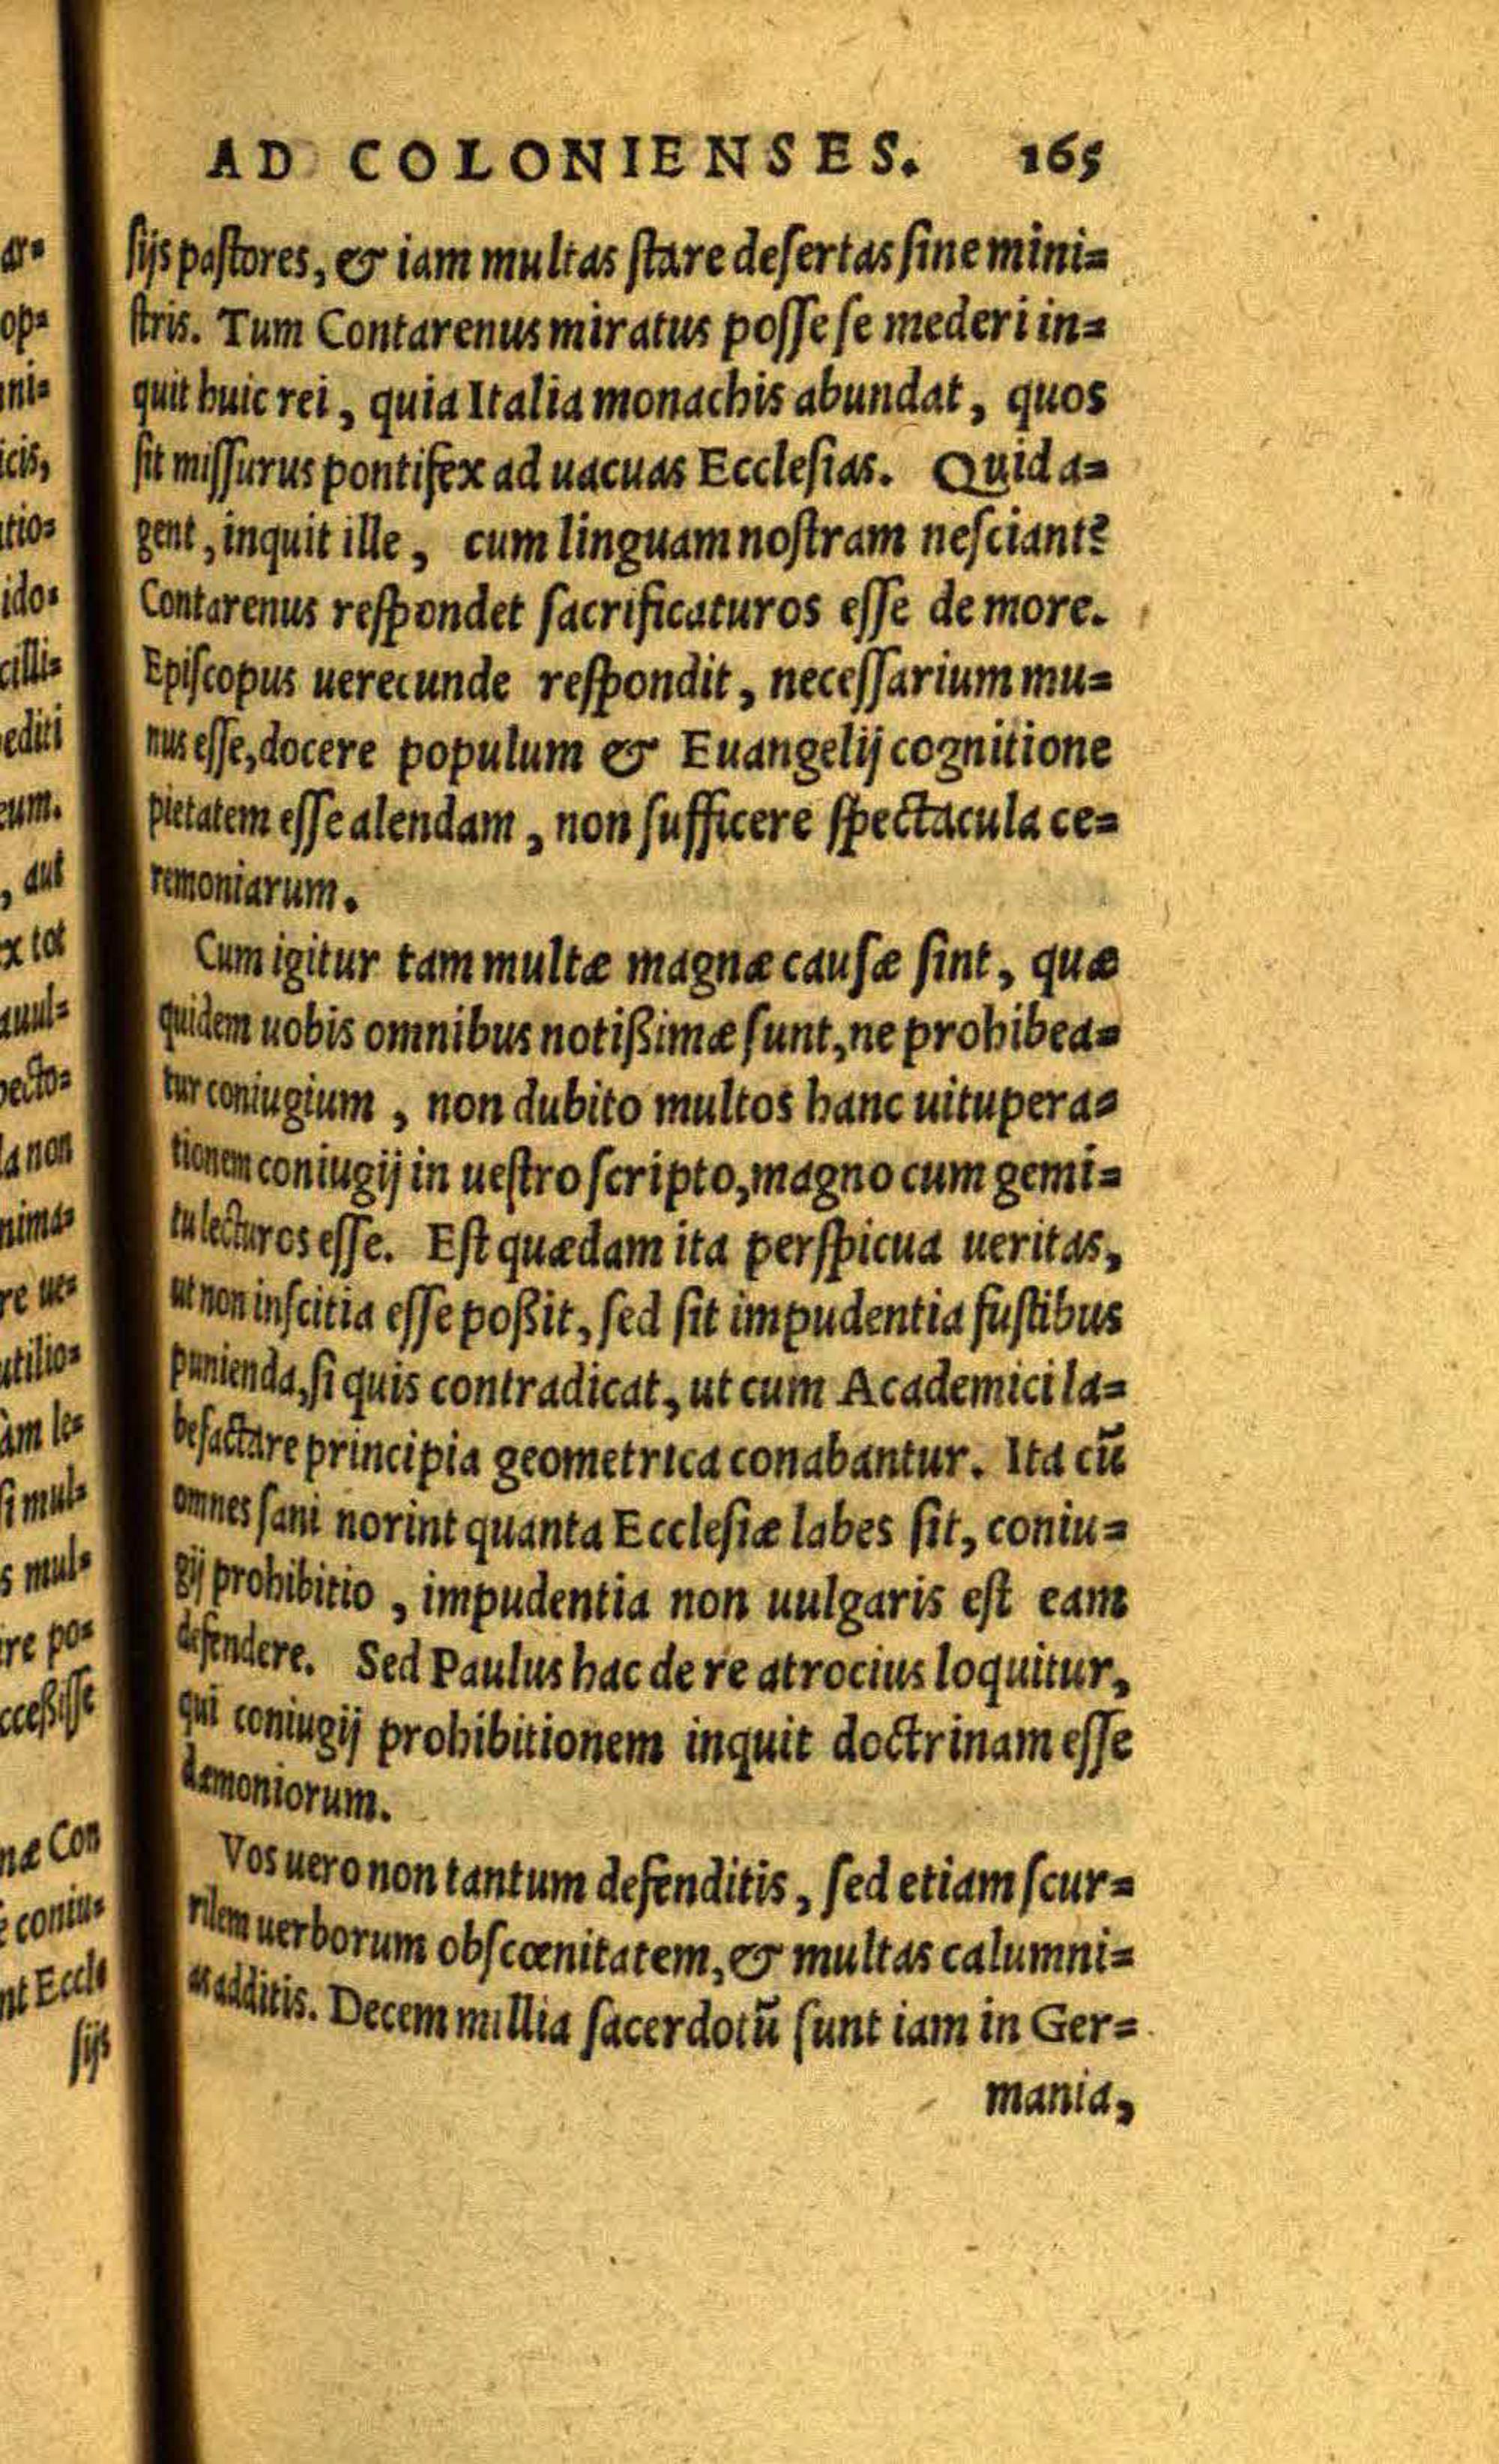 AD COLONIENSES. 165
sijs pastores, & iam multas stare desertas sine mini=
stris. Tum Contarenus miratus posse se mederi in=
quit huic rei, quia Italia monachis abundat, quos
sit missurus pontifex ad uacuas Ecclesias. Quid a=
gent, inquit ille, cum linguam nostram nesciant?
Contarenus respondet sacrificaturos esse de more.
Episcopus uerecunde respondit, necessarium mu=
nus esse, docere populum & Euangelij cognitione
pietatem esse alendam, non sufficere spectacula ce=
remoniarum.
Cum igitur tam multæ magnæ causæ sint, quæ
quidem uobis omnibus notißimæ sunt, ne prohibea=
tur coniugium, non dubito multos hanc uitupera=
tionem coniugij in uestro scripto, magno cum gemi=
tu lecturos esse. Est quædam ita perspicua ueritas,
ut non inscitia esse poßit, sed sit impudentia fustibus
punienda, si quis contradicat, ut cum Academici la=
befactare principia geometrica conabantur. Ita cū
omnes sani norint quanta Ecclesiæ labes sit, coniu=
gij prohibitio, impudentia non uulgaris est eam
defendere. Sed Paulus hac de re atrocius loquitur,
qui coniugij prohibitionem inquit doctrinam esse
dæmoniorum.
Vos uero non tantum defenditis, sed etiam scur=
rilem uerborum obscœnitatem, & multas calumni=
as additis. Decem millia sacerdotū sunt iam in Ger=
mania,
ar=
op=
ni=
icis,
tio=
ido=
cilli=
editi
eum.
, aut
x tot
auul=
pecto=
la non
nima=
re ue=
utilio=
àm le=
si mul=
s mul=
re po=
cceßisse
næ Con
coniu=
nt Eccle
sijs